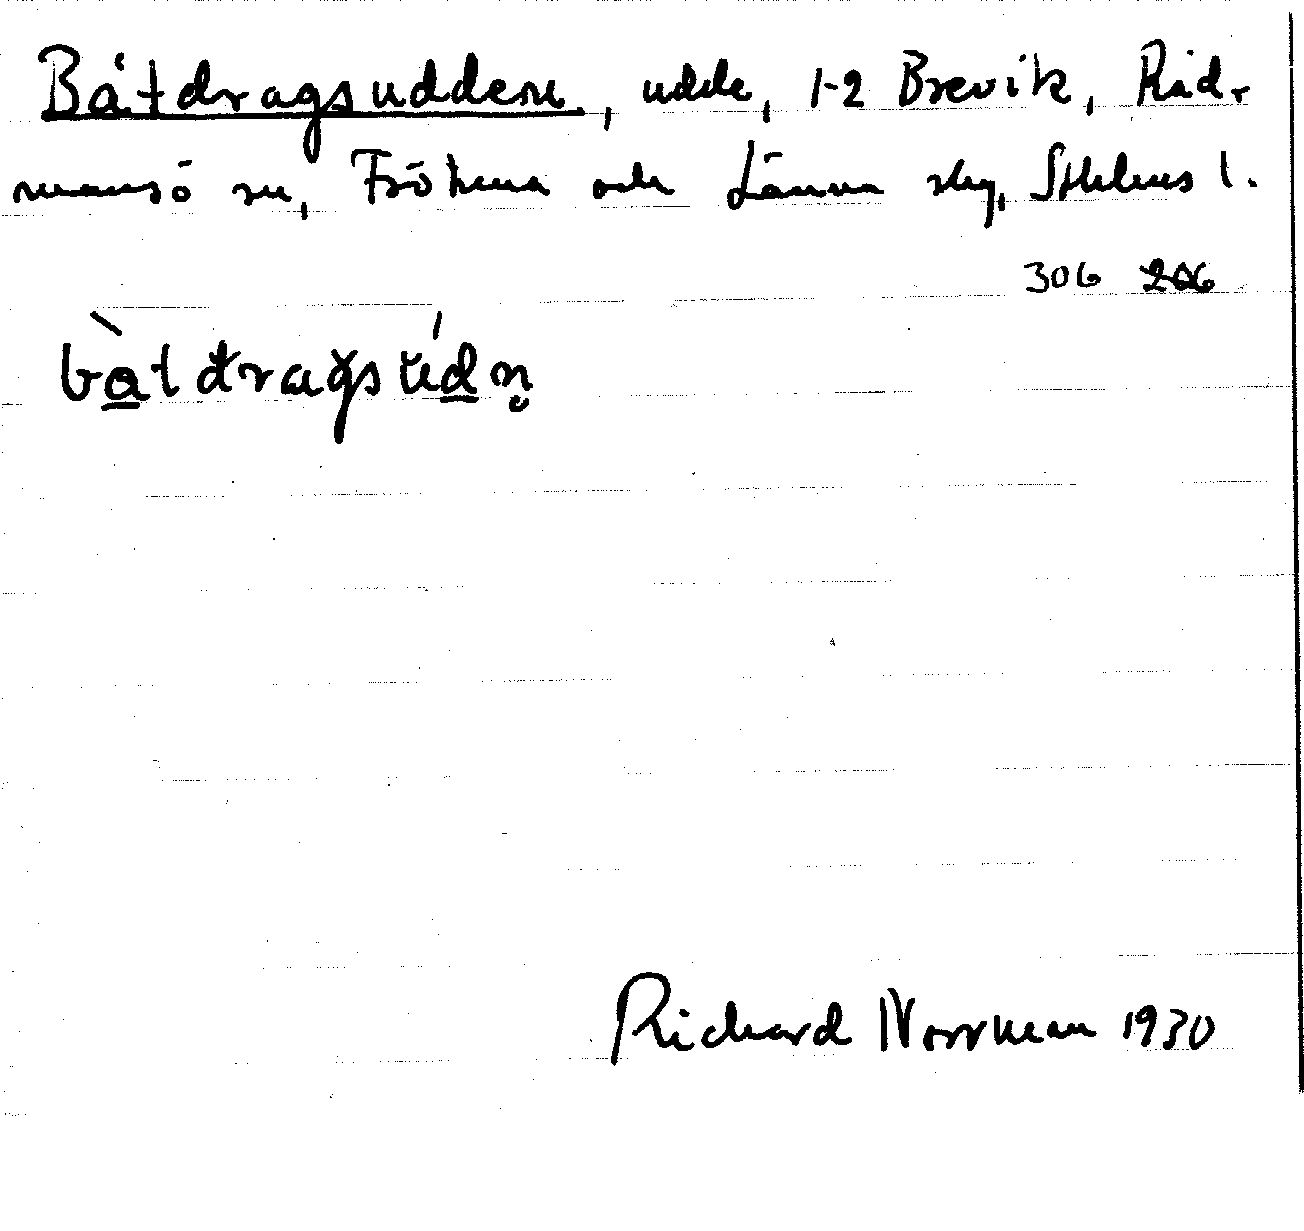 Båtdragsudden, udde, 1-2 Brevik, Råd-
mansö sn, Frötuna och Länna skg, Sthlms l.
306 206
båtdragsudn̥
Richard Norrman 1930